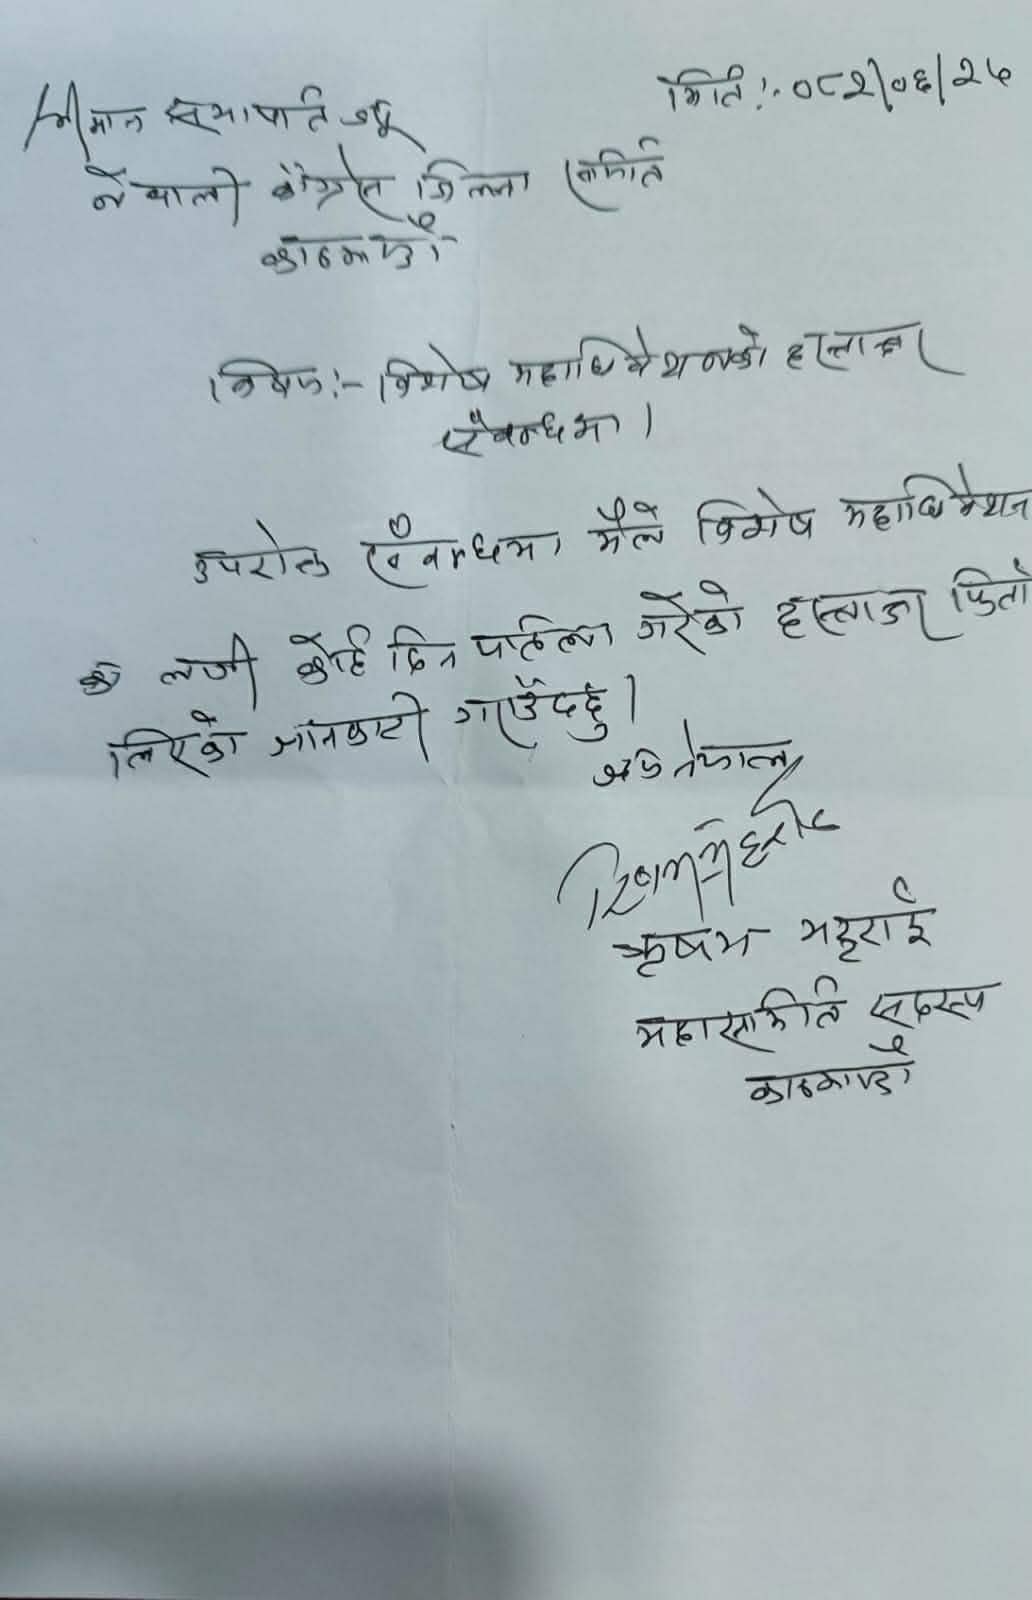 मिति:- ०८२/०६/२५
श्रीमान सभापति ज्यू
नेपाली काँग्रेस जिल्ला समिति
काठमाडौं
विषय:- विशेष महाधिवेशनको हस्ताक्षर
संबन्धमा ।
उपरोक्त संबन्धमा मैले विशेष महाधिवेशन
को लागी केहि दिन पहिला गरेको हस्ताक्षर फिर्ता
लिएको जानकारी गराउँदछु ।
जय नेपाल
ऋषभ भट्टराई
महासमिति सदस्य
काठमाडौं